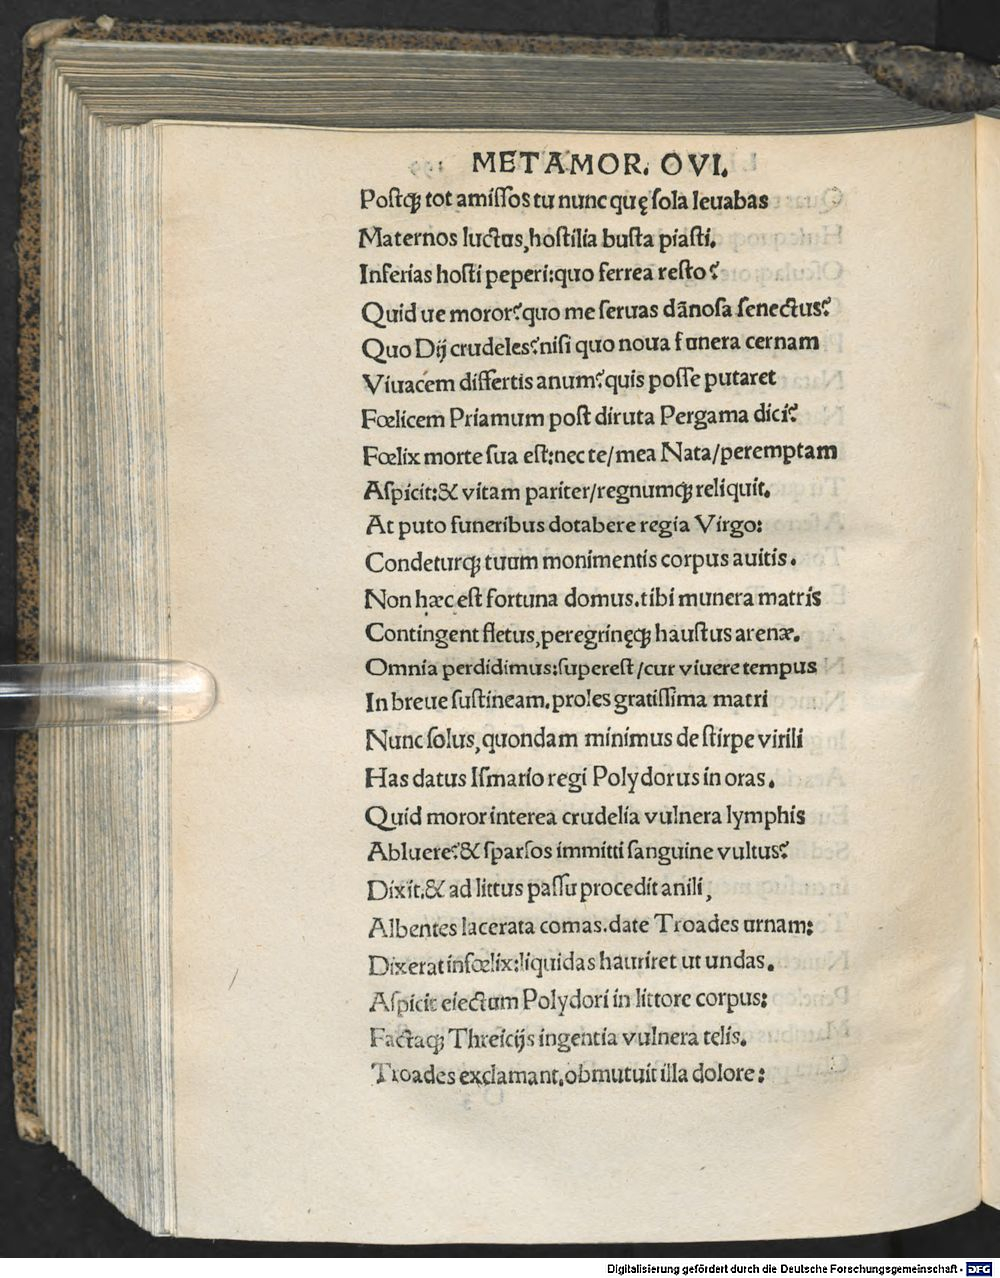 METAMOR. OVI.
Postꝗ tot amissos tu nunc quę sola leuabas
Maternos luctus, hostilia busta piasti.
Inferias hosti peperi: quo ferrea resto?
Quid ue moror? quo me seruas dãnosa senectus?
Quo Dij crudeles? nisi quo noua funera cernam
Viuacem differtis anum? quis posse putaret
Fœlicem Priamum post diruta Pergama dici?
Fœlix morte sua est: nec te/mea Nata/peremptam
Aspicit: & vitam pariter/regnumqꝫ reliquit.
At puto funeribus dotabere regia Virgo:
Condeturqꝫ tuum monimentis corpus auitis.
Non hæc est fortuna domus. tibi munera matris
Contingent fletus, peregrinęqꝫ haustus arenæ.
Omnia perdidimus: superest/cur viuere tempus
In breue sustineam. proles gratissima matri
Nunc solus, quondam minimus de stirpe virili
Has datus Ismario regi Polydorus in oras.
Quid moror interea crudelia vulnera lymphis
Abluere? & sparsos immitti sanguine vultus?
Dixit. & ad littus passu procedit anili,
Albentes lacerata comas. date Troades urnam:
Dixerat infœlix: liquidas hauriret ut undas.
Aspicit eiectum Polydori in littore corpus:
Factaqꝫ Threicijs ingentia vulnera telis.
Troades exclamant. obmutuit illa dolore:
Digitalisierung gefördert durch die Deutsche Forschungsgemeinschaft - DFG